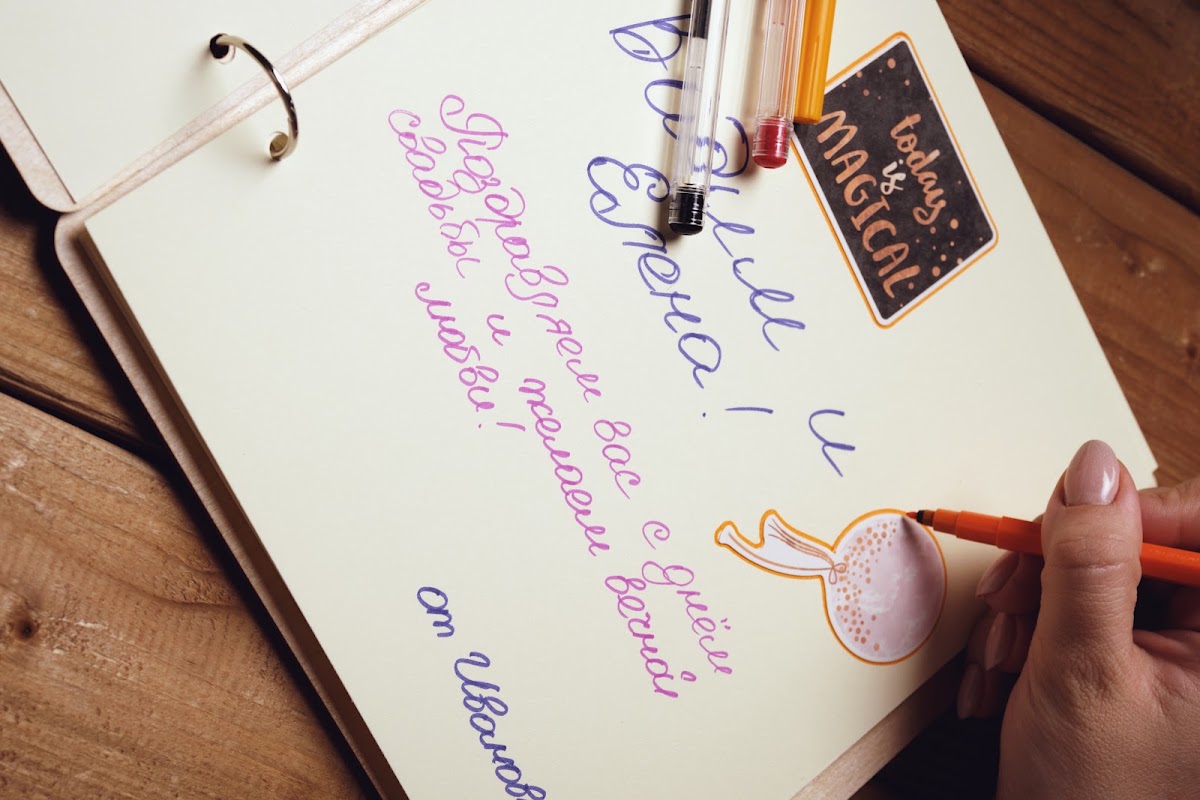 today
is
MAGICAL
Вадим и
Елена!
Поздравляем вас с днём
свадьбы и желаем вечной
любви!
от Иванов